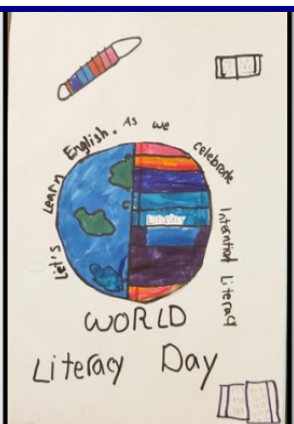 Let's Learn English. As we celebrate
Intentinal Literacy
WORLD
Literacy Day